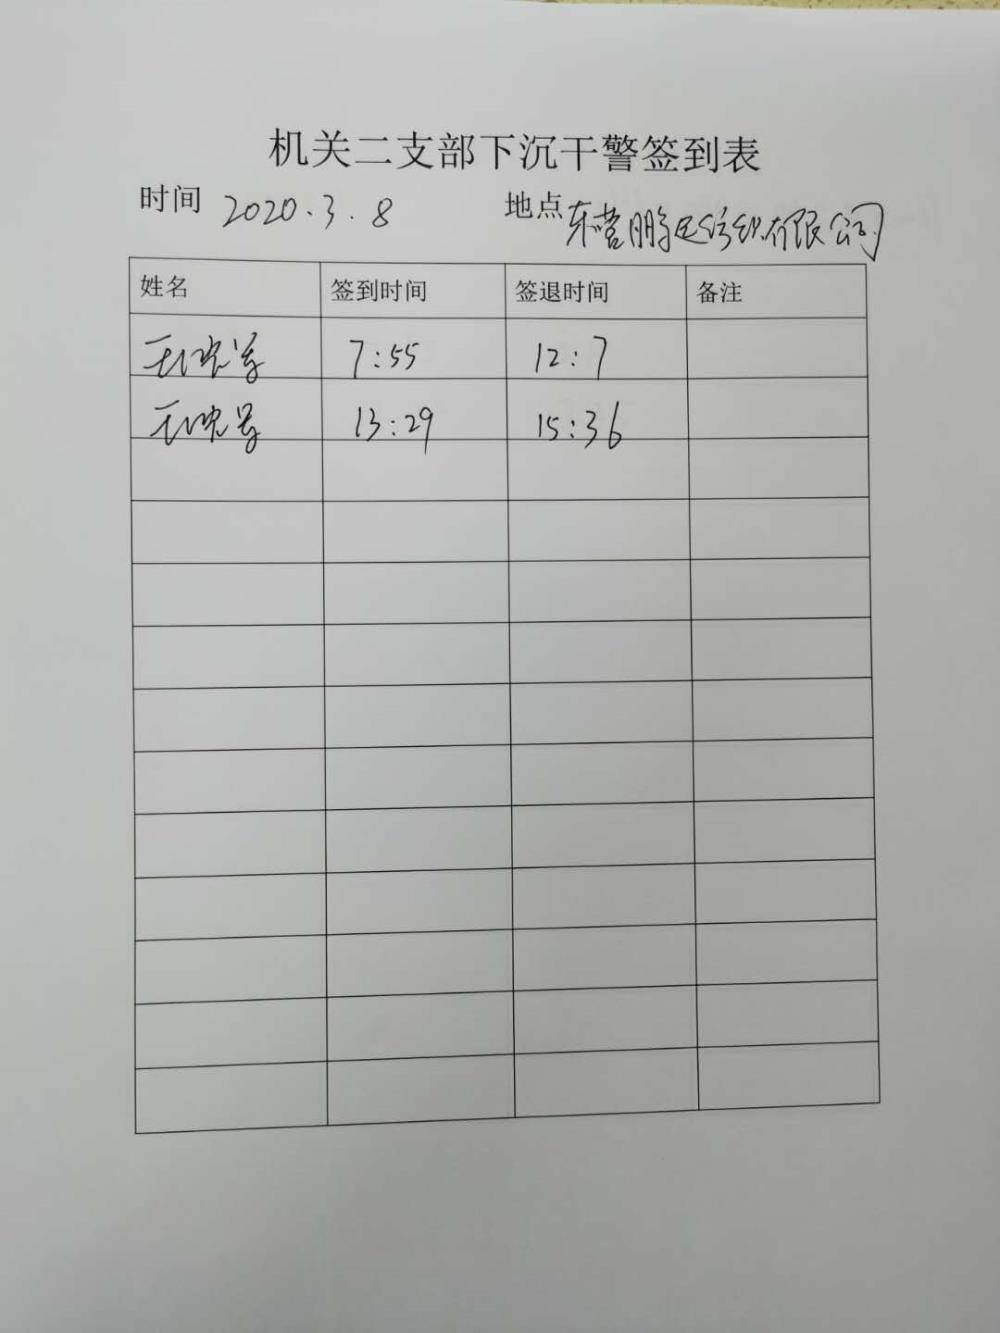 机关二支部下沉干警签到表
时间 2020.3.8 地点 东营鹏达纺织有限公司
姓名 签到时间 签退时间 备注
7:55 12:7
13:29 15:36